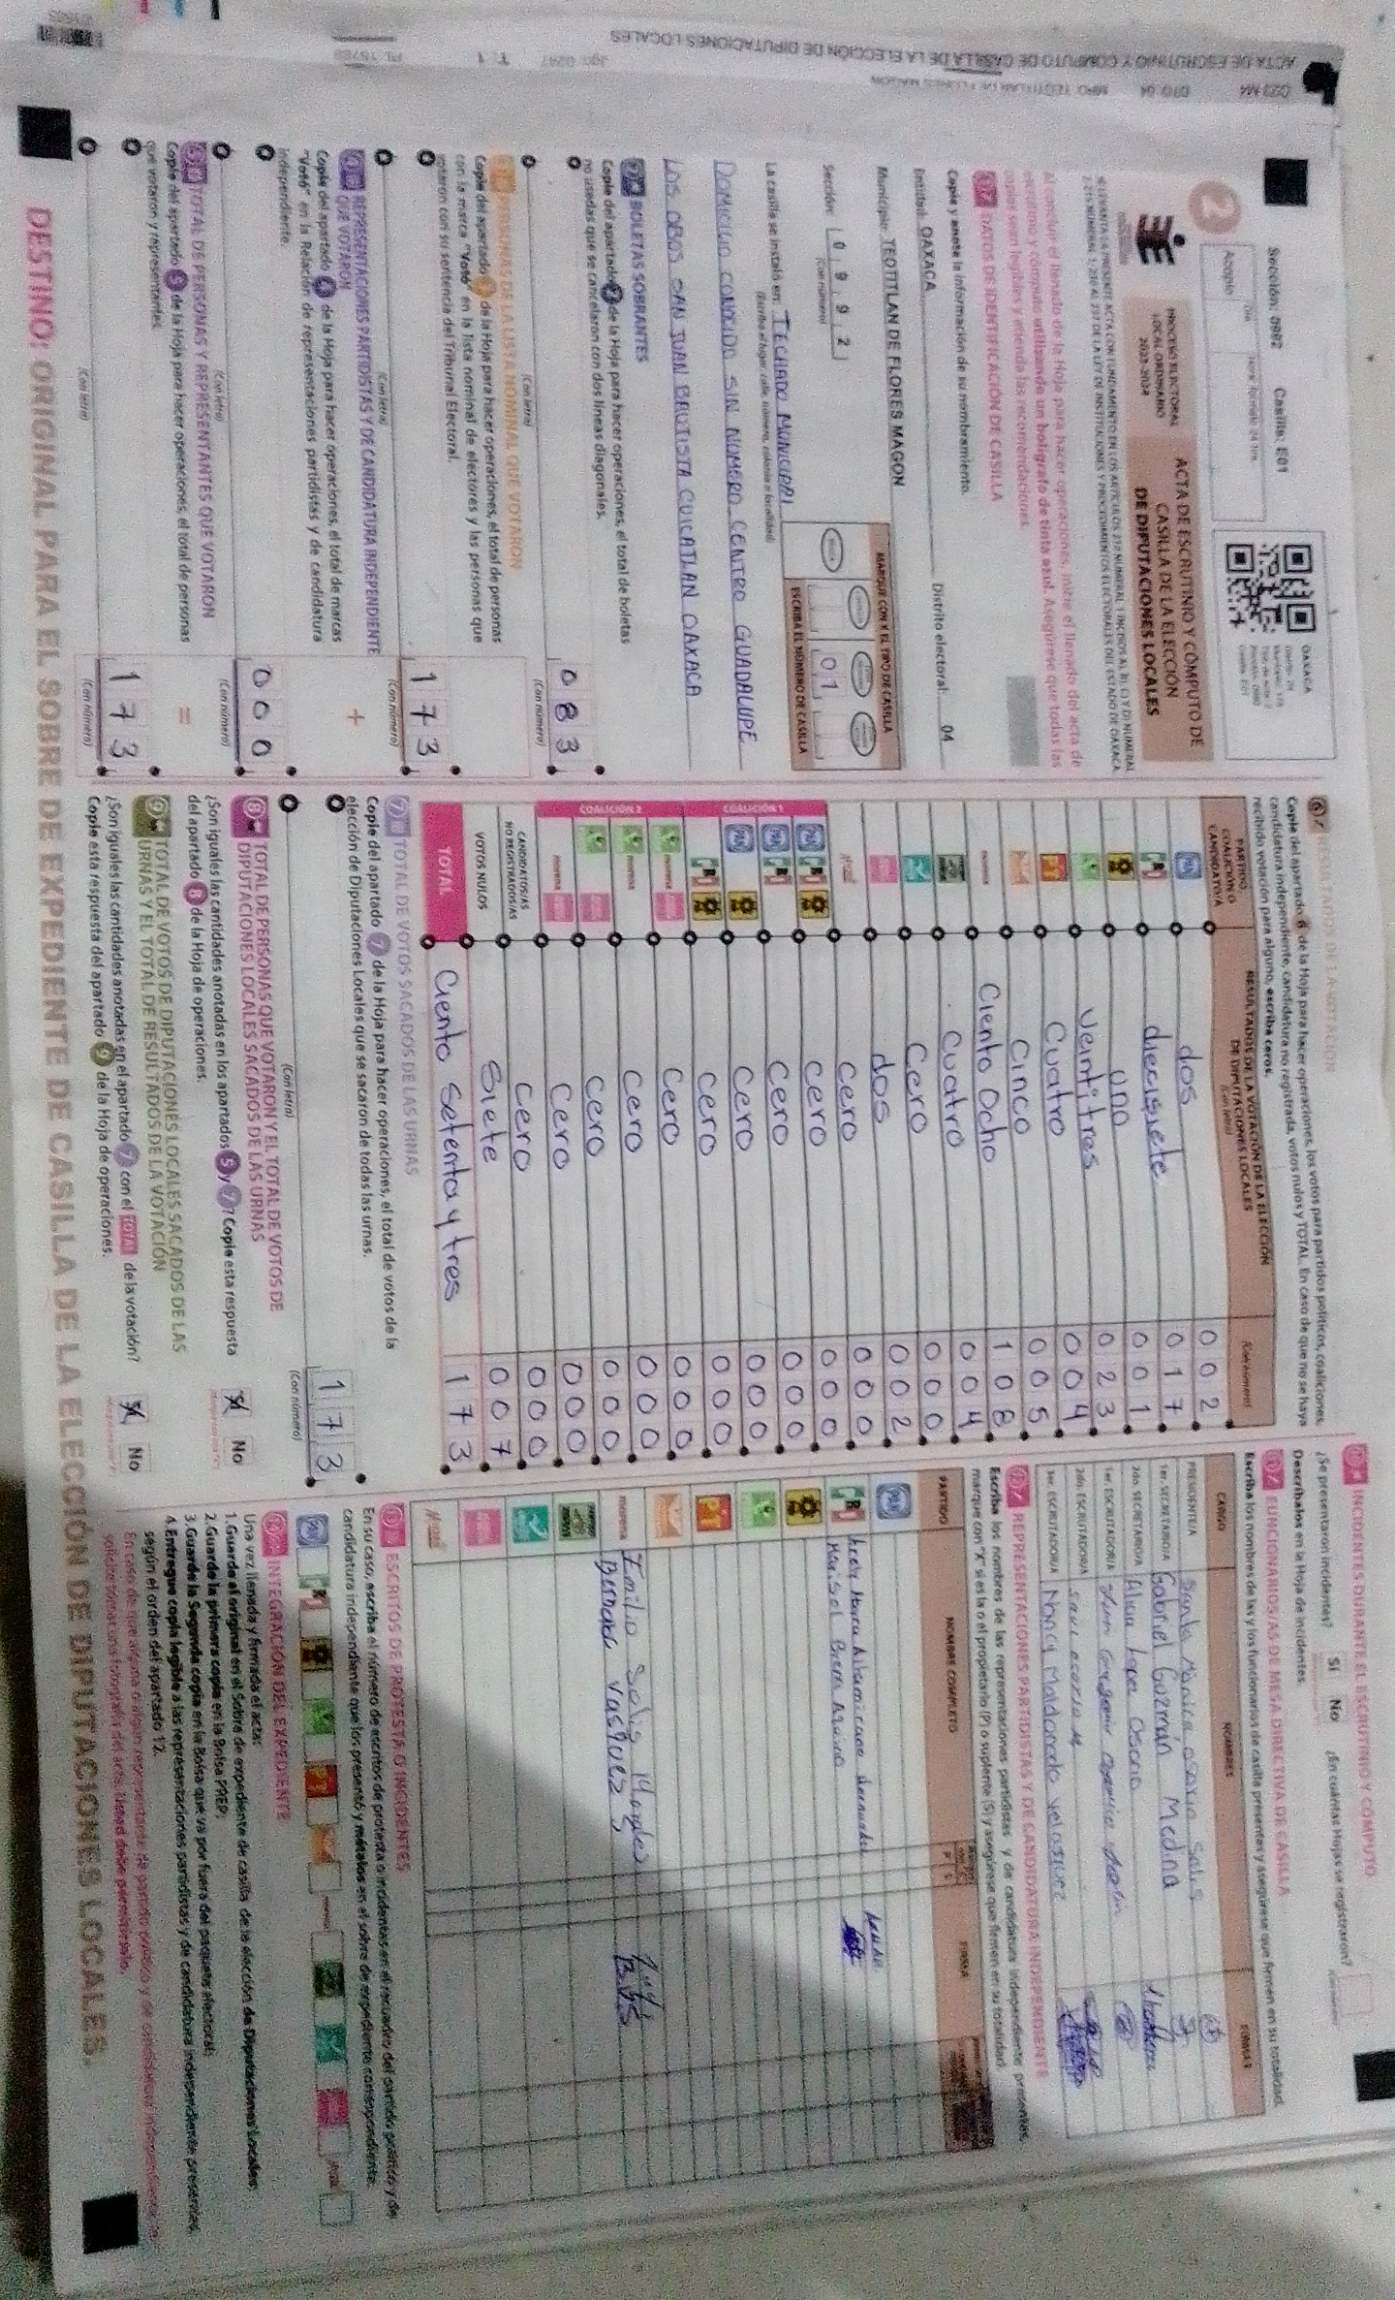 ACTA DE ESCRUTINIO Y CÓMPUTO DE CASILLA DE LA ELECCIÓN DE DIPUTACIONES LOCALES
Sección: 0992 Casilla: E01
OAXACA
2
Acopio
PROCESO ELECTORAL
LOCAL ORDINARIO
2023-2024
ACTA DE ESCRUTINIO Y CÓMPUTO DE
CASILLA DE LA ELECCIÓN
DE DIPUTACIONES LOCALES
Al concluir el llenado de la Hoja para hacer operaciones, inicie el llenado del acta de
escrutinio y cómputo utilizando un bolígrafo de tinta azul. Asegúrese que todas las
copias sean legibles y atienda las recomendaciones.
DATOS DE IDENTIFICACIÓN DE CASILLA
Copie y anote la información de su nombramiento.
Entidad: OAXACA Distrito electoral: 04
Municipio: TEOTITLAN DE FLORES MAGON
Sección: 0 9 9 2
(Con número)
MARQUE CON X EL TIPO DE CASILLA
0 1
ESCRIBA EL NÚMERO DE CASILLA
La casilla se instaló en: TECHADO MUNICIPAL
(Escriba el lugar: calle, número, colonia o localidad)
DOMICILIO CONOCIDO SIN NUMERO CENTRO GUADALUPE
LOS OBOS SAN JUAN BAUTISTA CUICATLAN OAXACA
2 BOLETAS SOBRANTES
Copie del apartado 2 de la Hoja para hacer operaciones, el total de boletas
no usadas que se cancelaron con dos líneas diagonales.
0 8 3
(Con letra) (Con número)
3 PERSONAS DE LA LISTA NOMINAL QUE VOTARON
Copie del apartado 3 de la Hoja para hacer operaciones, el total de personas
con la marca "Votó" en la lista nominal de electores y las personas que
votaron con su sentencia del Tribunal Electoral.
1 7 3
(Con letra) (Con número)
4 REPRESENTACIONES PARTIDISTAS Y DE CANDIDATURA INDEPENDIENTE
QUE VOTARON
+
Copie del apartado 4 de la Hoja para hacer operaciones, el total de marcas
"Votó" en la Relación de representaciones partidistas y de candidatura
independiente.
0 0 0
(Con letra) (Con número)
5 TOTAL DE PERSONAS Y REPRESENTANTES QUE VOTARON
=
Copie del apartado 5 de la Hoja para hacer operaciones, el total de personas
que votaron y representantes.
1 7 3
(Con letra) (Con número)
6 RESULTADOS DE LA VOTACIÓN
Copie del apartado 6 de la Hoja para hacer operaciones, los votos para partidos políticos, coaliciones,
candidatura independiente, candidatura no registrada, votos nulos y TOTAL. En caso de que no se haya
recibido votación para alguno, escriba ceros.
PARTIDO, COALICIÓN O CANDIDATO/A
RESULTADOS DE LA VOTACIÓN DE LA ELECCIÓN
DE DIPUTACIONES LOCALES
(Con letra) (Con número)
PAN dos 0 0 2
PRI diecisiete 0 1 7
uno 0 0 1
Veintitres 0 2 3
PT Cuatro 0 0 4
Cinco 0 0 5
morena Ciento Ocho 1 0 8
Cuatro 0 0 4
Cero 0 0 0
dos 0 0 2
cero 0 0 0
COALICIÓN 1
cero 0 0 0
cero 0 0 0
cero 0 0 0
cero 0 0 0
COALICIÓN 2
cero 0 0 0
cero 0 0 0
cero 0 0 0
cero 0 0 0
CANDIDATOS/AS
NO REGISTRADOS/AS cero 0 0 0
VOTOS NULOS Siete 0 0 7
TOTAL Ciento Setenta y tres 1 7 3
7 TOTAL DE VOTOS SACADOS DE LAS URNAS
Copie del apartado 7 de la Hoja para hacer operaciones, el total de votos de la
elección de Diputaciones Locales que se sacaron de todas las urnas.
1 7 3
(Con letra) (Con número)
8 TOTAL DE PERSONAS QUE VOTARON Y EL TOTAL DE VOTOS DE
DIPUTACIONES LOCALES SACADOS DE LAS URNAS
¿Son iguales las cantidades anotadas en los apartados 5 y 7? Copie esta respuesta
del apartado 8 de la Hoja de operaciones.
Sí No
9 TOTAL DE VOTOS DE DIPUTACIONES LOCALES SACADOS DE LAS
URNAS Y EL TOTAL DE RESULTADOS DE LA VOTACIÓN
¿Son iguales las cantidades anotadas en el apartado 7 con el TOTAL de la votación?
Copie esta respuesta del apartado 9 de la Hoja de operaciones.
Sí No
INCIDENTES DURANTE EL ESCRUTINIO Y CÓMPUTO
¿Se presentaron incidentes? Sí No ¿En cuántas Hojas se registraron?
Descríbalos en la Hoja de incidentes.
FUNCIONARIOS/AS DE MESA DIRECTIVA DE CASILLA
Escriba los nombres de las y los funcionarios de casilla presentes y asegúrese que firmen en su totalidad.
CARGO NOMBRES FIRMAS
PRESIDENTE/A Santa Monica osorio Solis
1er. SECRETARIO/A Gabriel Guzmán Medina
2do. SECRETARIO/A Alicia Lopez Osorio
1er. ESCRUTADOR/A
2do. ESCRUTADOR/A
3er. ESCRUTADOR/A Nancy Maldonado Velasquez
REPRESENTACIONES PARTIDISTAS Y DE CANDIDATURA INDEPENDIENTE
Escriba los nombres de las representaciones partidistas y de candidatura independiente presentes,
marque con "X" si es la o el propietario (P) o suplente (S) y asegúrese que firmen en su totalidad.
PARTIDO NOMBRE COMPLETO FIRMA
PAN
PRI
PT
morena Emilio Solis
Bernabe Vasquez
ESCRITOS DE PROTESTA O INCIDENTES
En su caso, escriba el número de escritos de protesta o incidentes en el recuadro del partido político y de
candidatura independiente que los presentó y métalos en el sobre de expediente correspondiente.
INTEGRACIÓN DEL EXPEDIENTE
Una vez llenada y firmada el acta:
1. Guarde el original en el Sobre de expediente de casilla de la elección de Diputaciones Locales;
2. Guarde la primera copia en la Bolsa PREP;
3. Guarde la Segunda copia en la Bolsa que va por fuera del paquete electoral;
4. Entregue copia legible a las representaciones partidistas y de candidatura independiente presentes,
según el orden del apartado 12.
DESTINO: ORIGINAL PARA EL SOBRE DE EXPEDIENTE DE CASILLA DE LA ELECCIÓN DE DIPUTACIONES LOCALES.